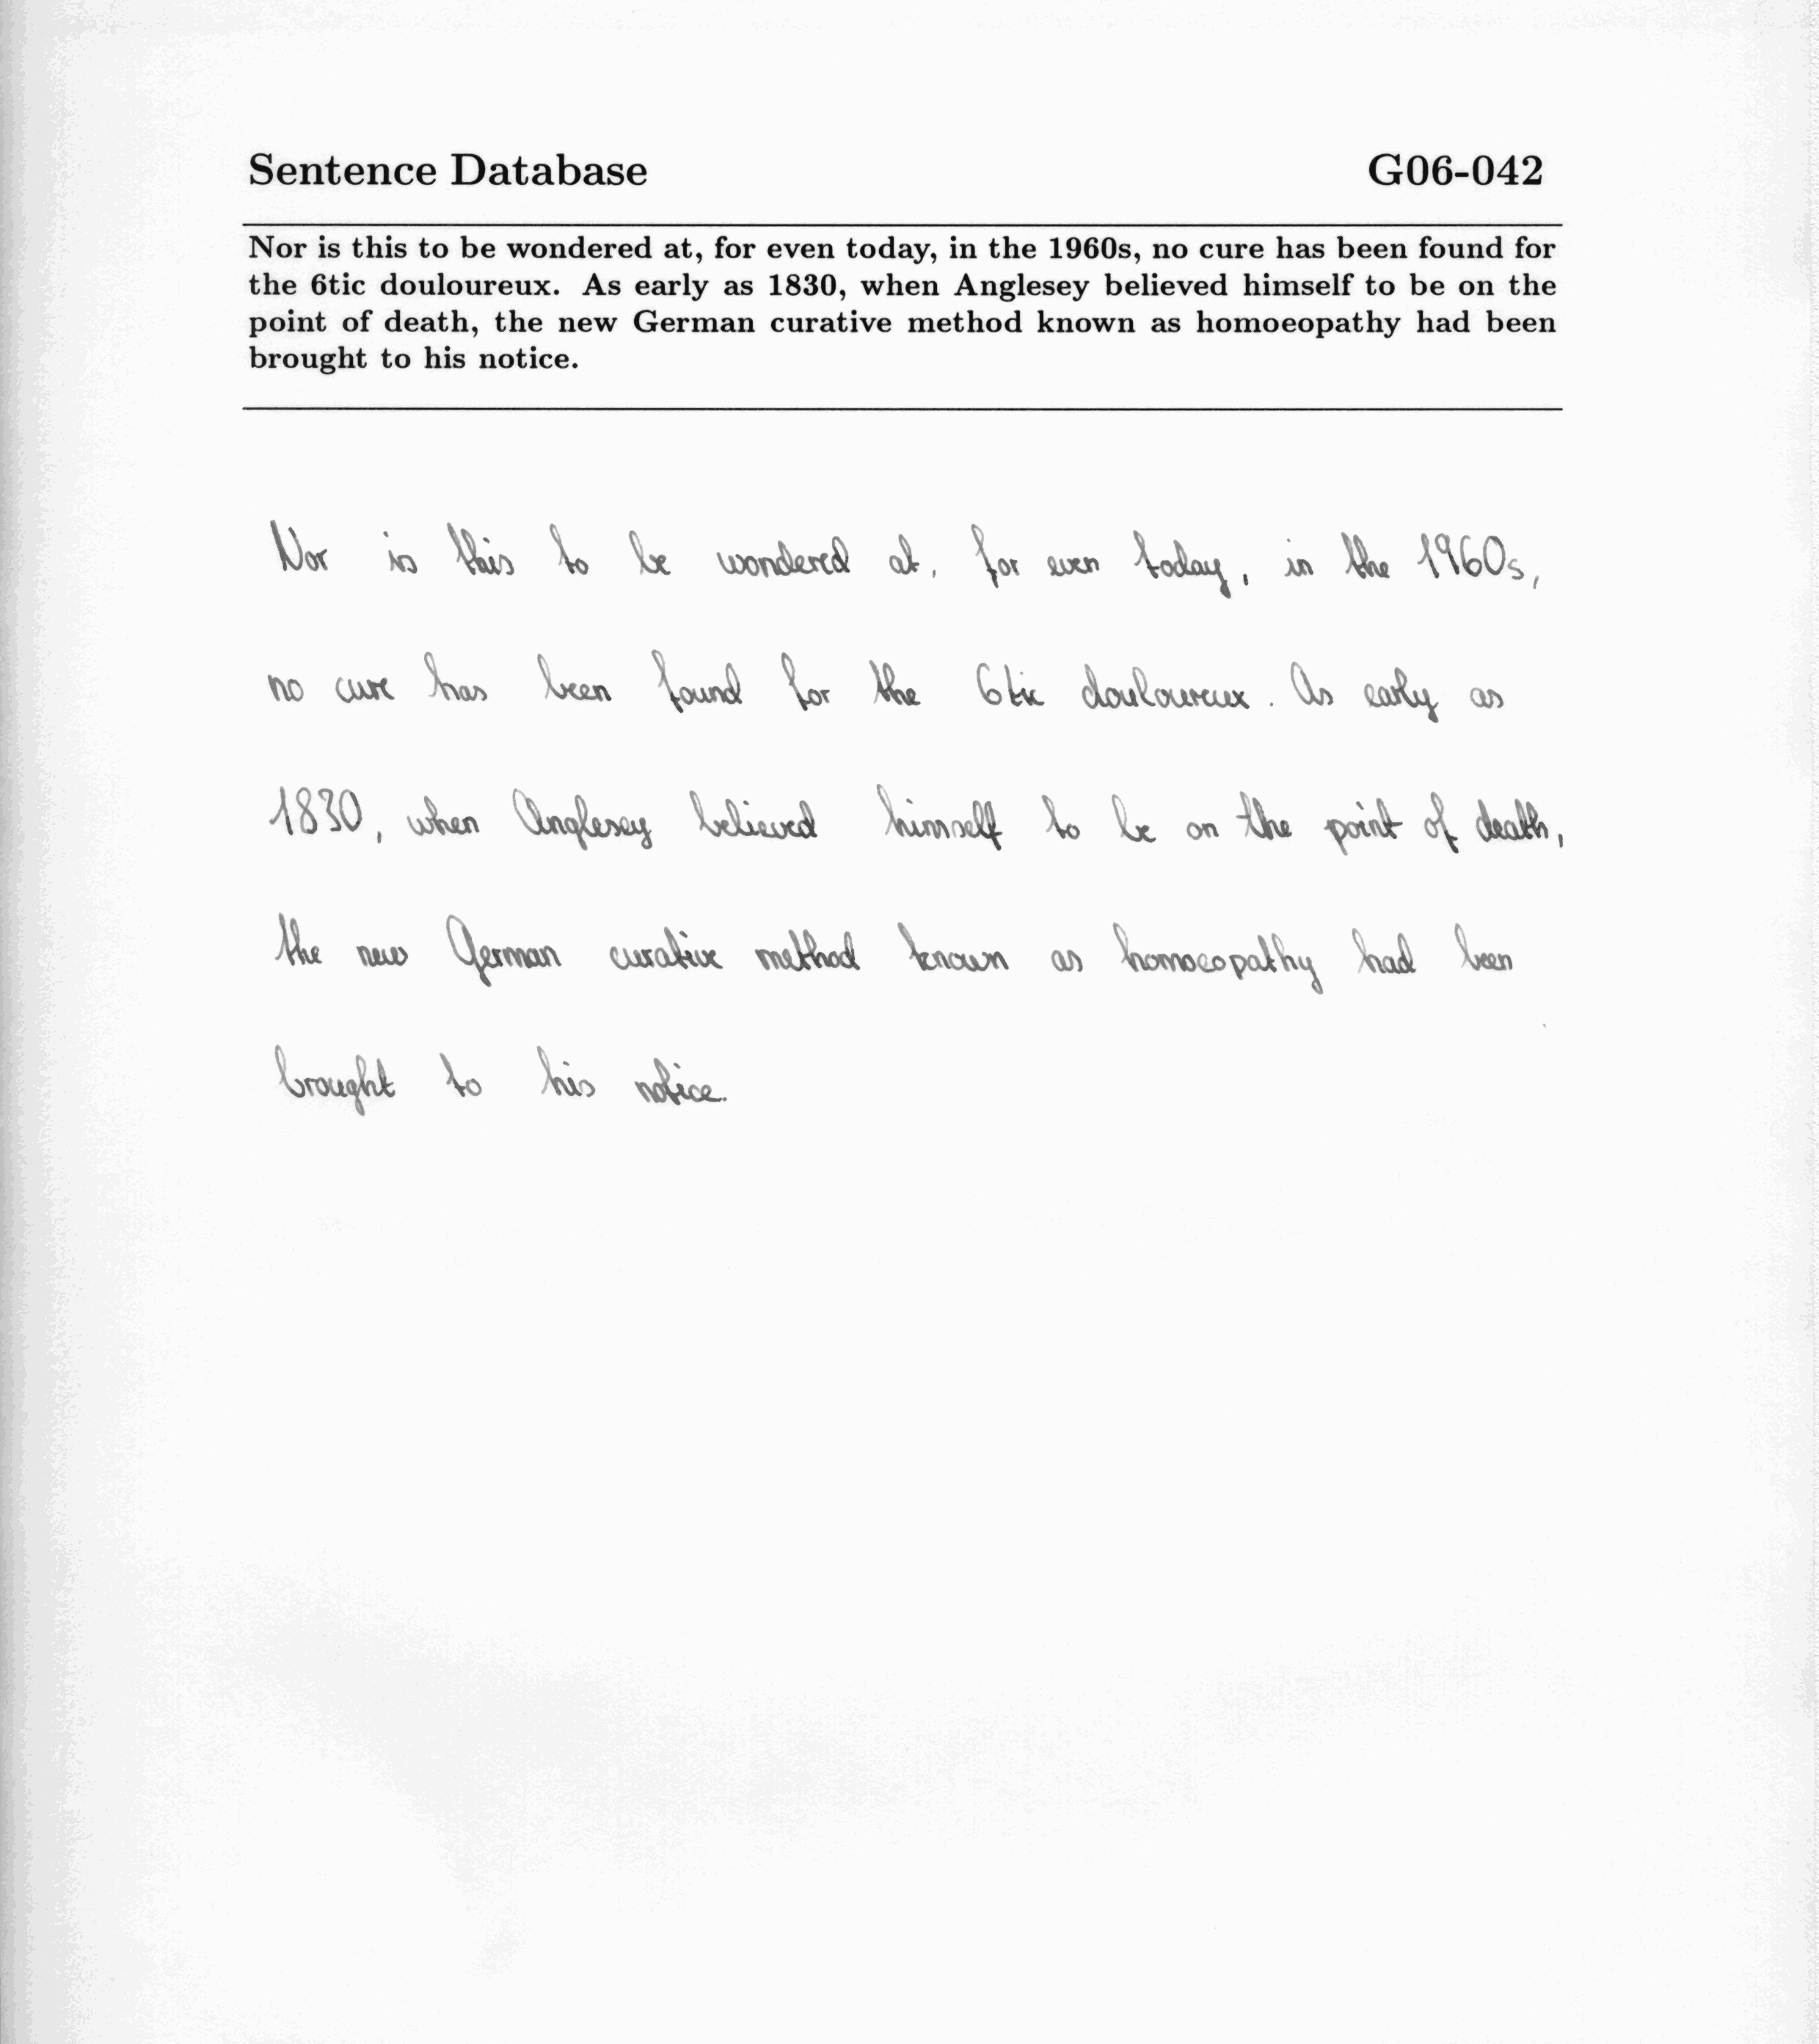 Sentence Database G06-042
Nor is this to be wondered at, for even today, in the 1960s, no cure has been found for
the 6tic douloureux. As early as 1830, when Anglesey believed himself to be on the
point of death, the new German curative method known as homoeopathy had been
brought to his notice.
Nor is this to be wondered at, for even today, in the 1960s,
no cure has been found for the 6tic douloureux. As early as
1830, when Anglesey believed himself to be on the point of death,
the new German curative method known as homoeopathy had been
brought to his notice.